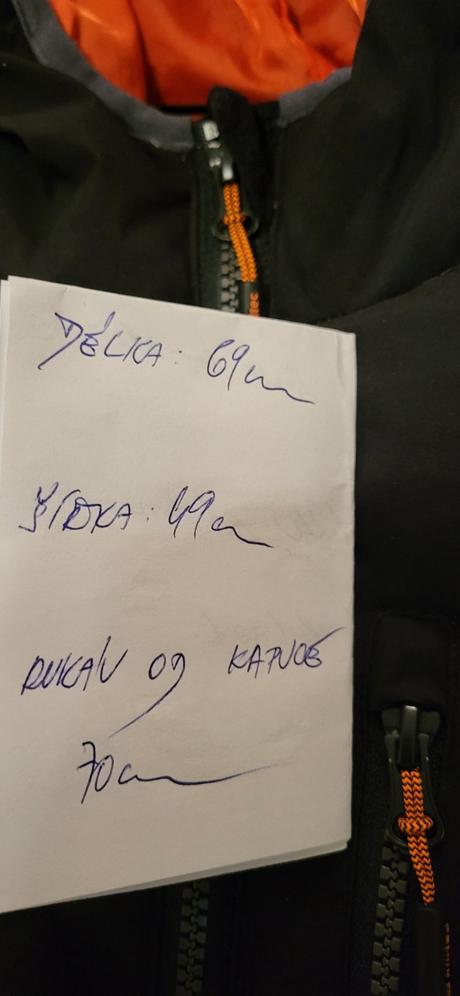 DÉLKA: 69cm
ŠÍŘKA: 49cm
RUKÁV OD KAPUCE
70cm